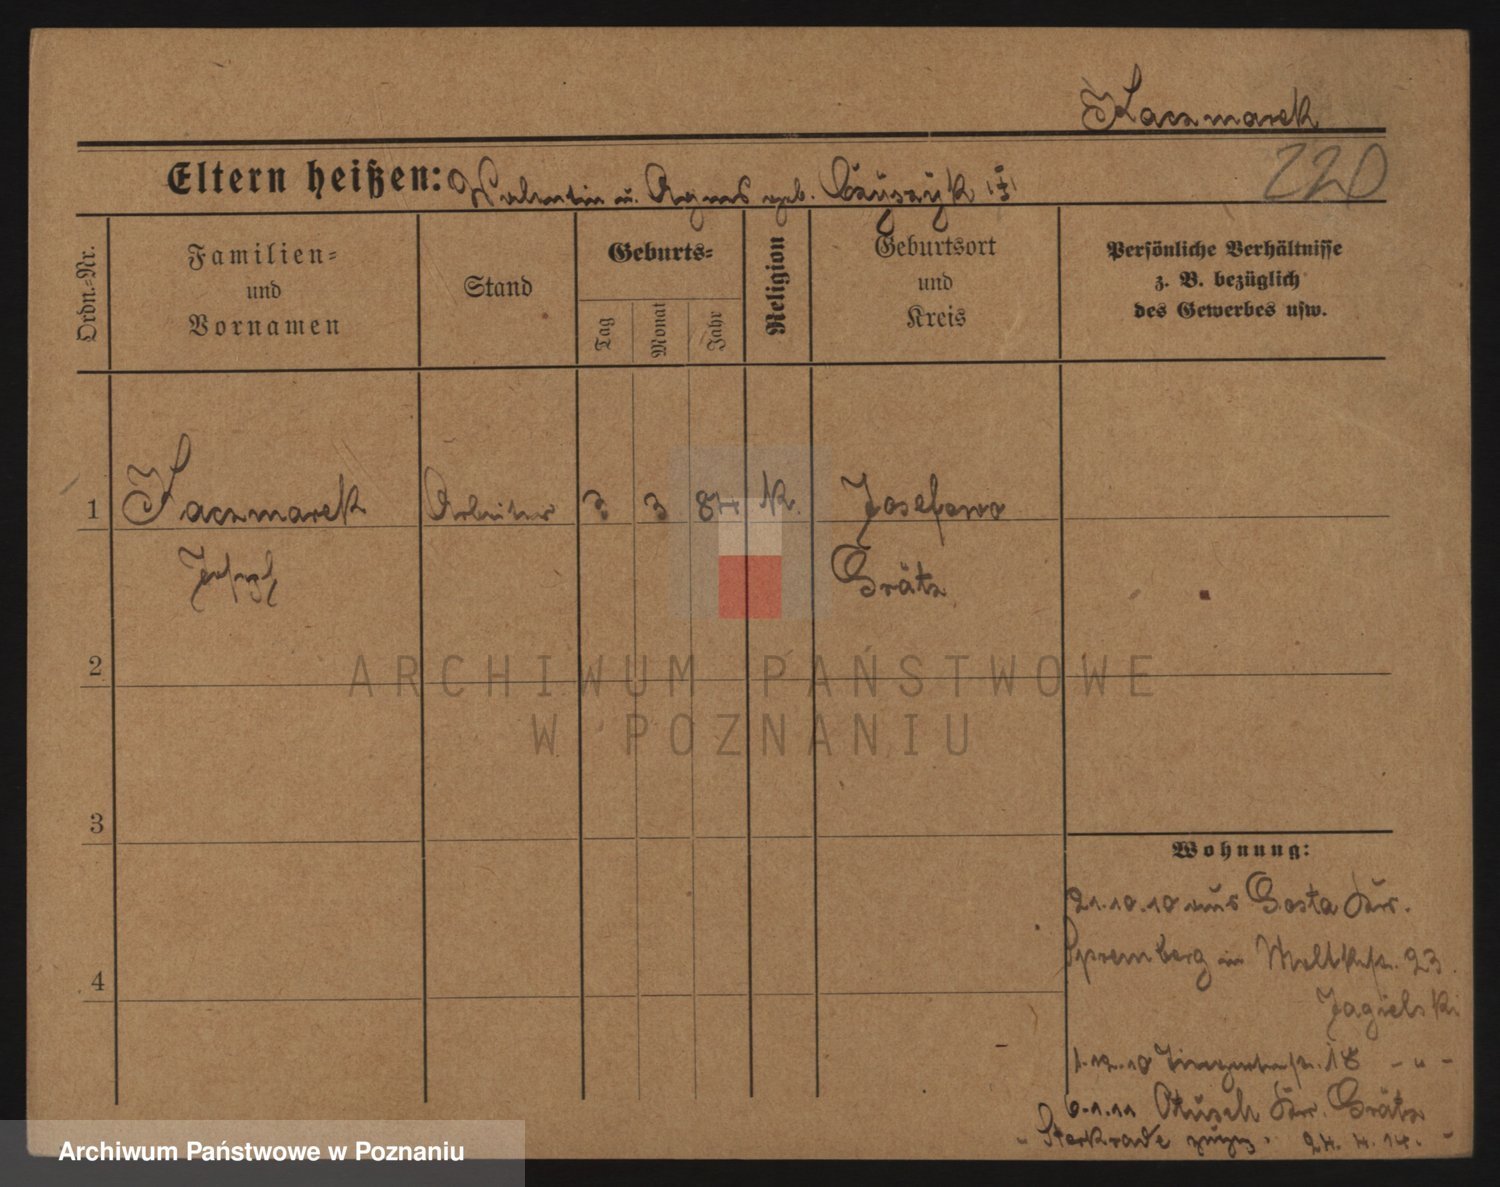 Kaczmarek
220
Eltern heißen: Valentin u. Agnes geb.
Ordn.-Nr.
Familien-
und
Vornamen
Stand
Geburts-
Tag
Monat
Jahr
Religion
Geburtsort
und
Kreis
Persönliche Verhältnisse
z. B. bezüglich
des Gewerbes usw.
1 Kaczmarek Arbeiter 3 3 87 K. Josefowo
Joseph Grätz
2
ARCHIWUM PAŃSTWOWE
W POZNANIU
3
Wohnung:
21.10.10 aus Gosta Kr.
Spremberg in Moltkestr. 23
4
Jagielski
1.12.10 18 - " -
6.1.11 Ptusch Kr. Grätz
Sterkrade 24.4.14.
Archiwum Państwowe w Poznaniu